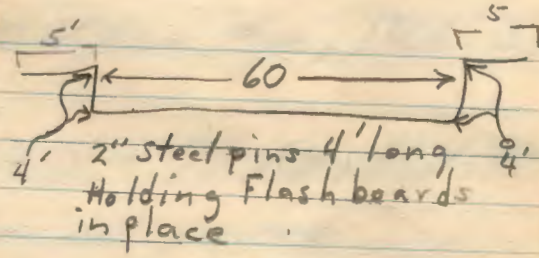 5' 5
60
4' 2" steel pins 4' long 4'
Holding Flash boards
in place.